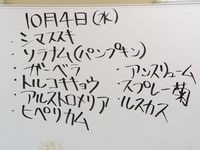 10月4日(水)
・シマススキ
・ソラナム(パンプキン)
・ガーベラ
・トルコキキョウ
・アルストロメリア
・ヒペリカム
・アンスリューム
・スプレー菊
・ルスカス